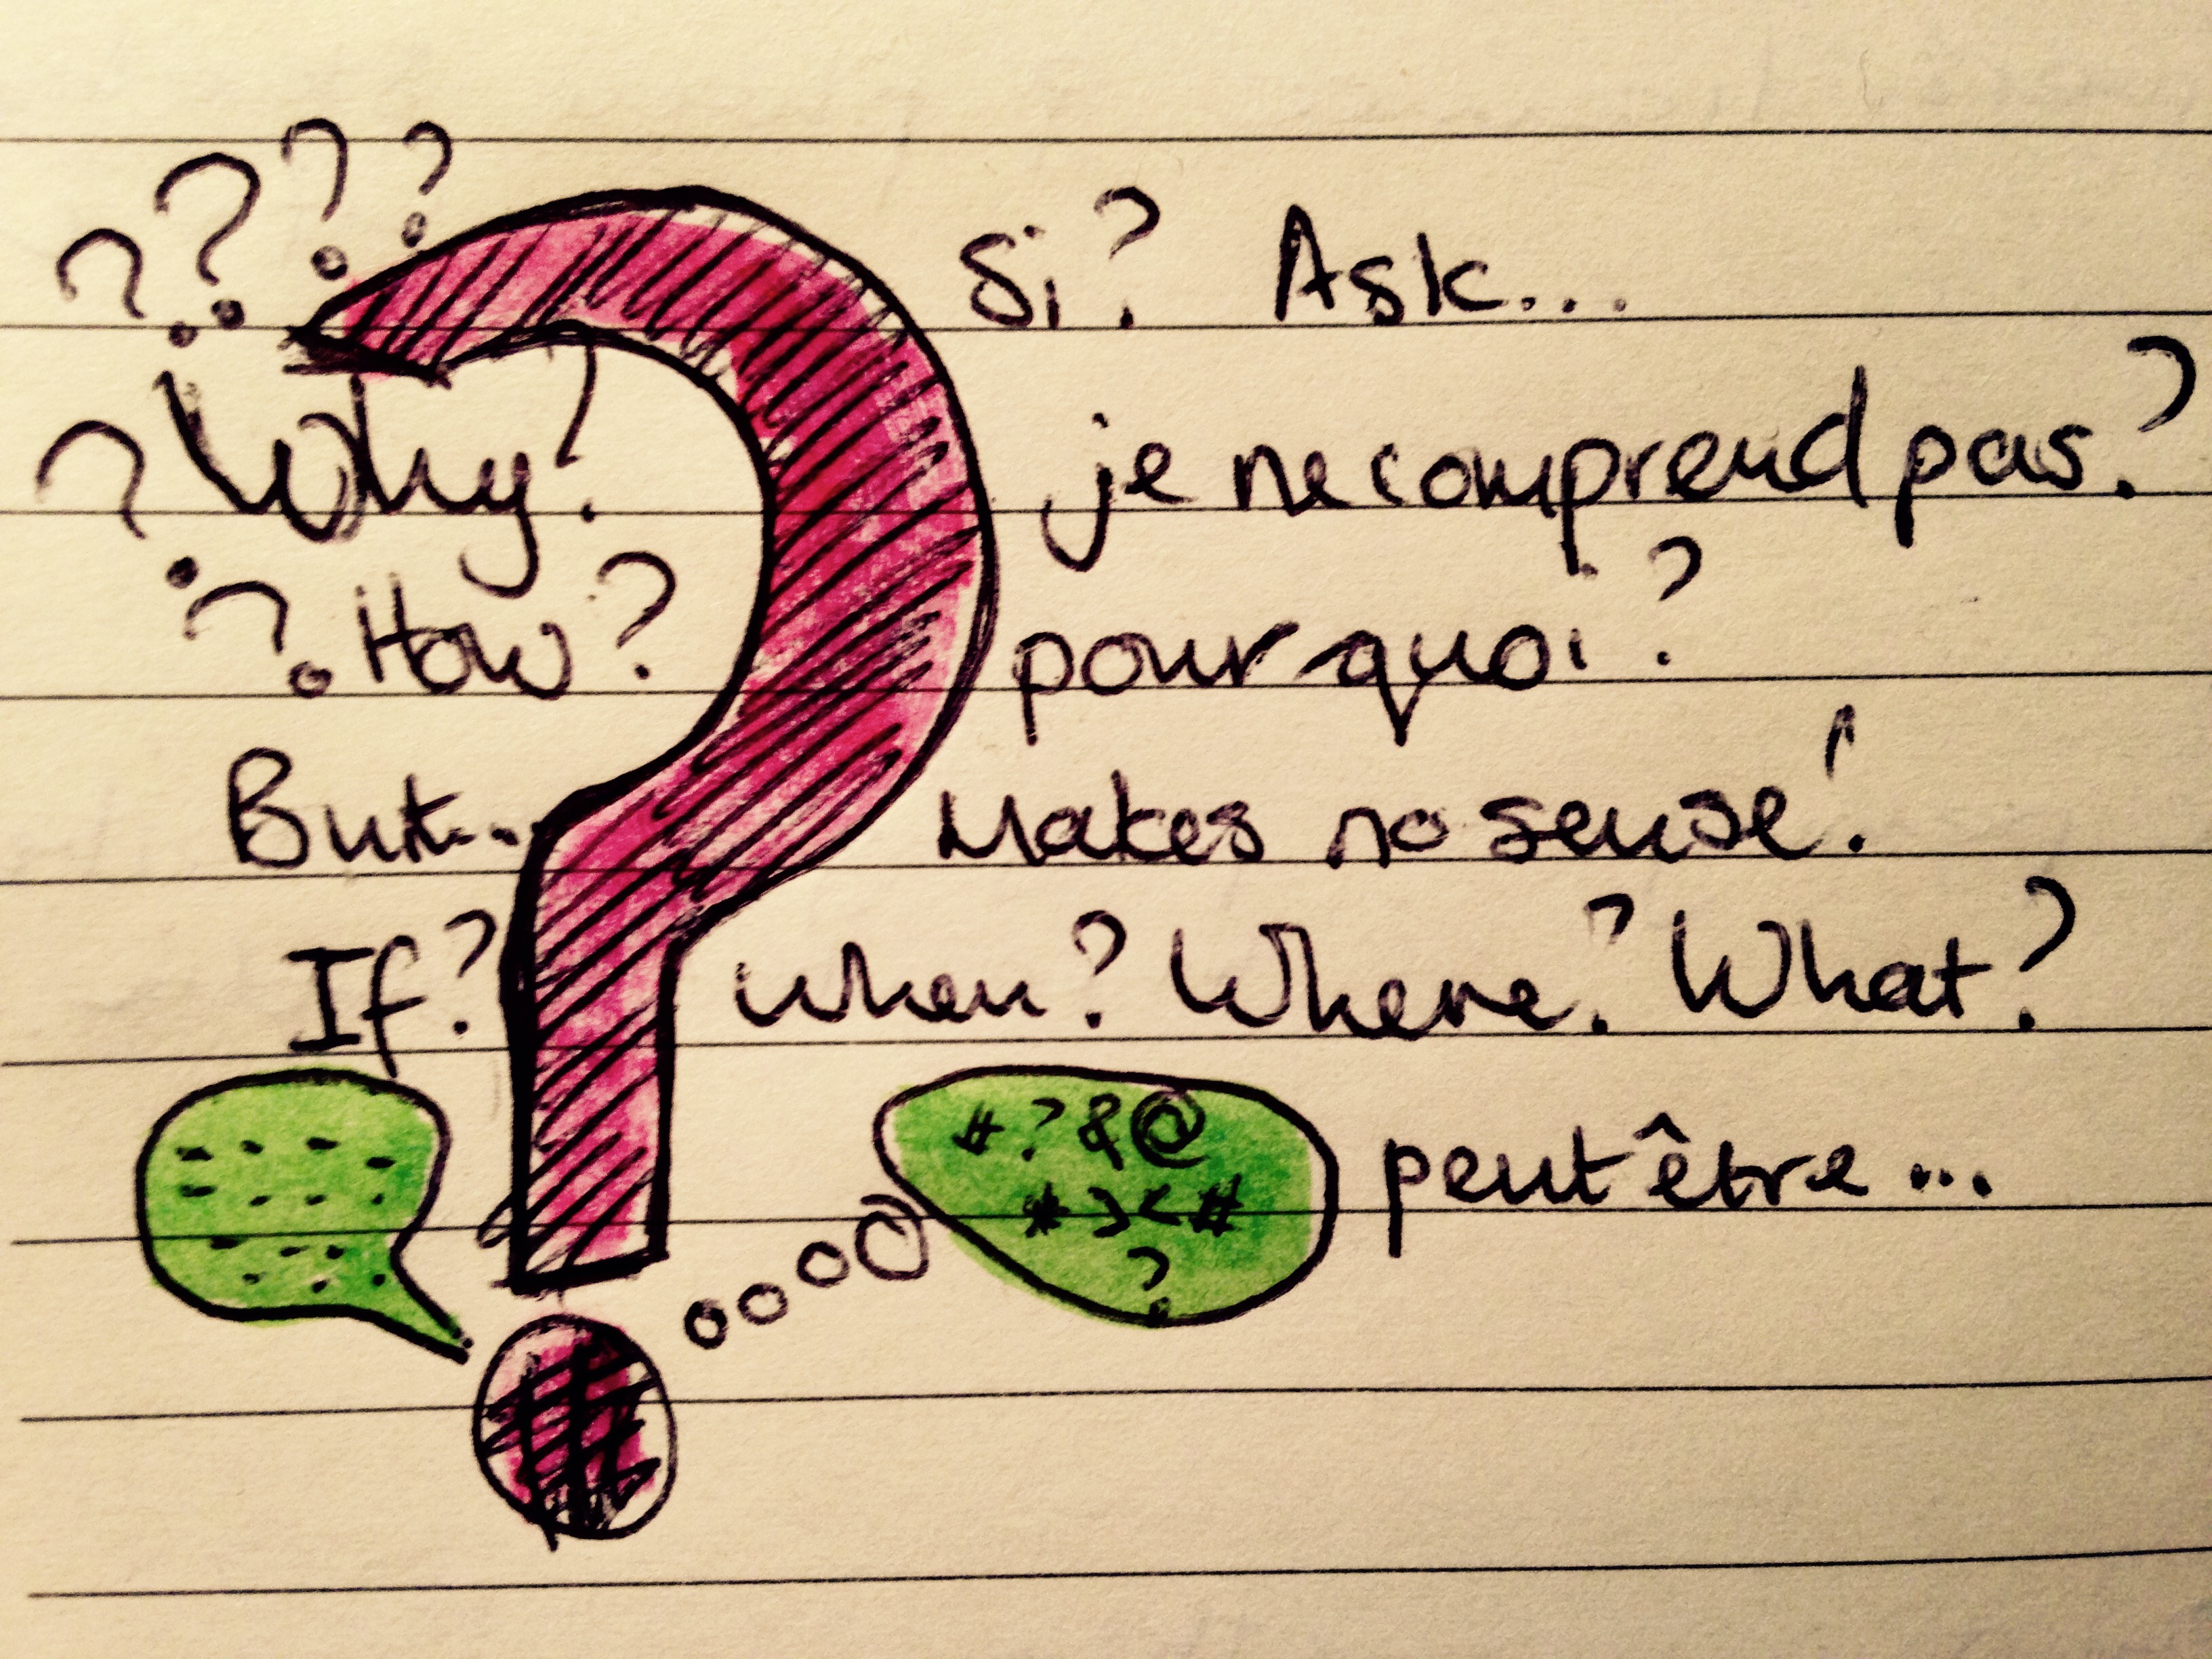 ? ? ? ?
Si? Ask...
? Why? je ne comprend pas?
? How? pourquoi?
But... Makes no sense!
If? When? Where? What?
#?&@
*><#
?
peut être...